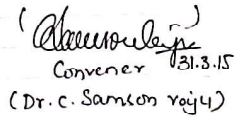 Convener 31.3.15
(Dr. C. Samson raju)